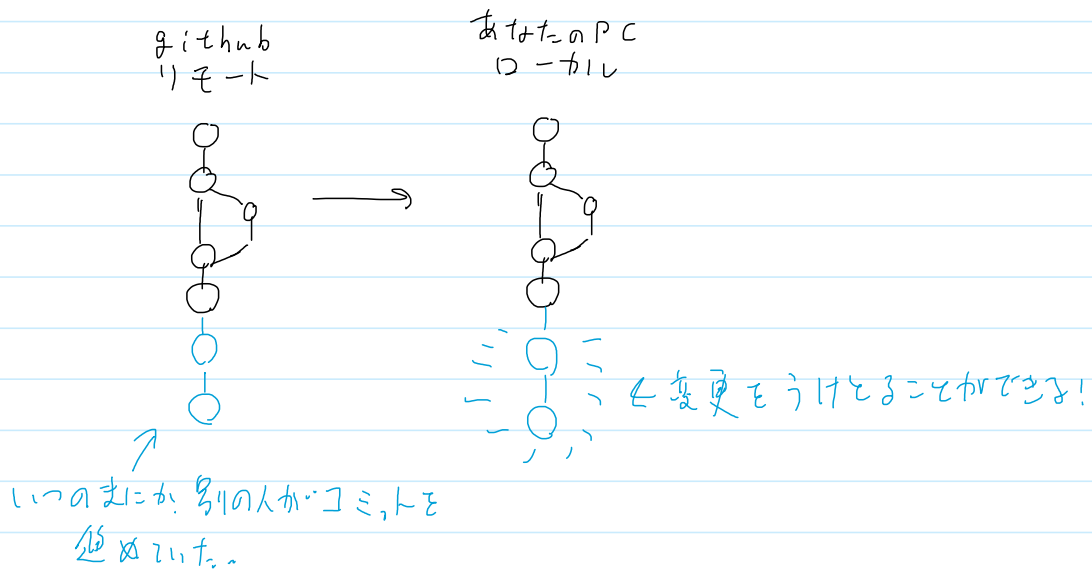 github
リモート
あなたのPC
ローカル
←変更をうけとることができる!
いつのまにか、別の人がコミットを
進めていた。